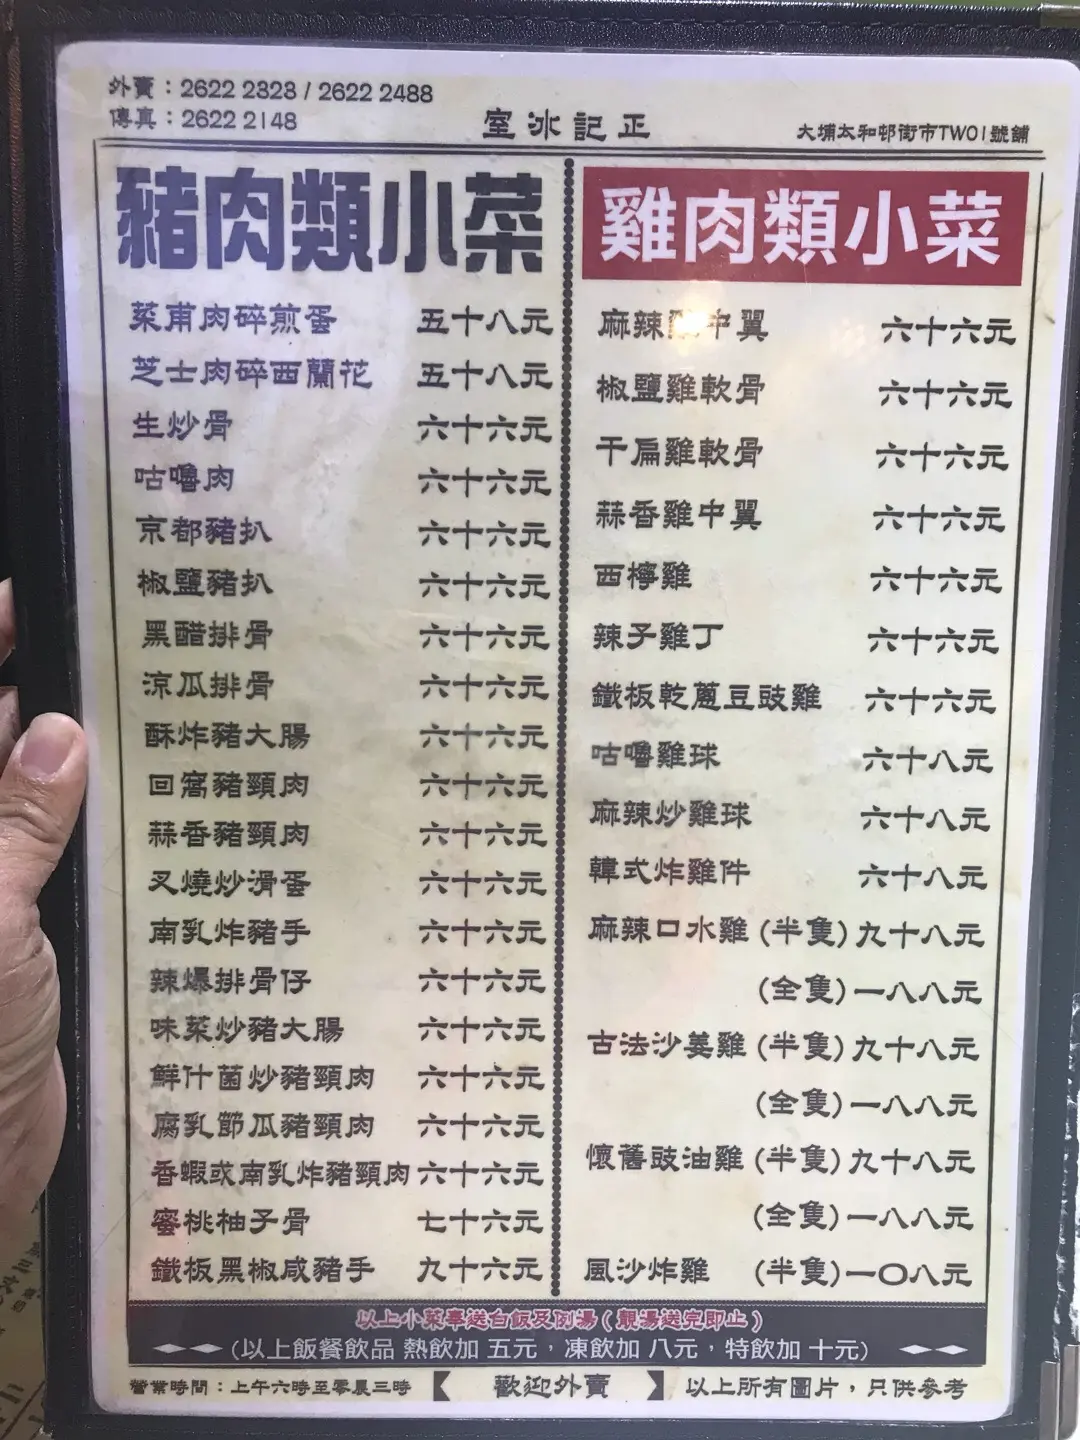 外賣：2622 2323 / 2622 2488
傳真：2622 2148
室冰記正
大埔太和邨街市TW01號舖
豬肉類小菜
菜甫肉碎煎蛋 五十八元
芝士肉碎西蘭花 五十八元
生炒骨 六十六元
咕嚕肉 六十六元
京都豬扒 六十六元
椒鹽豬扒 六十六元
黑醋排骨 六十六元
涼瓜排骨 六十六元
酥炸豬大腸 六十六元
回窩豬頸肉 六十六元
蒜香豬頸肉 六十六元
叉燒炒滑蛋 六十六元
南乳炸豬手 六十六元
辣爆排骨仔 六十六元
味菜炒豬大腸 六十六元
鮮什菌炒豬頸肉 六十六元
腐乳節瓜豬頸肉 六十六元
香蝦或南乳炸豬頸肉 六十六元
蜜桃柚子骨 七十六元
鐵板黑椒咸豬手 九十六元
雞肉類小菜
麻辣 中翼 六十六元
椒鹽雞軟骨 六十六元
干扁雞軟骨 六十六元
蒜香雞中翼 六十六元
西檸雞 六十六元
辣子雞丁 六十六元
鐵板乾蔥豆豉雞 六十六元
咕嚕雞球 六十八元
麻辣炒雞球 六十八元
韓式炸雞件 六十八元
麻辣口水雞 (半隻) 九十八元
(全隻) 一八八元
古法沙姜雞 (半隻) 九十八元
(全隻) 一八八元
懷舊豉油雞 (半隻) 九十八元
(全隻) 一八八元
風沙炸雞 (半隻) 一〇八元
以上小菜奉送白飯及例湯 ( 靚湯送完即止 )
(以上飯餐飲品 熱飲加 五元，凍飲加 八元，特飲加 十元)
營業時間：上午六時至零晨三時 【 歡迎外賣 】 以上所有圖片，只供參考